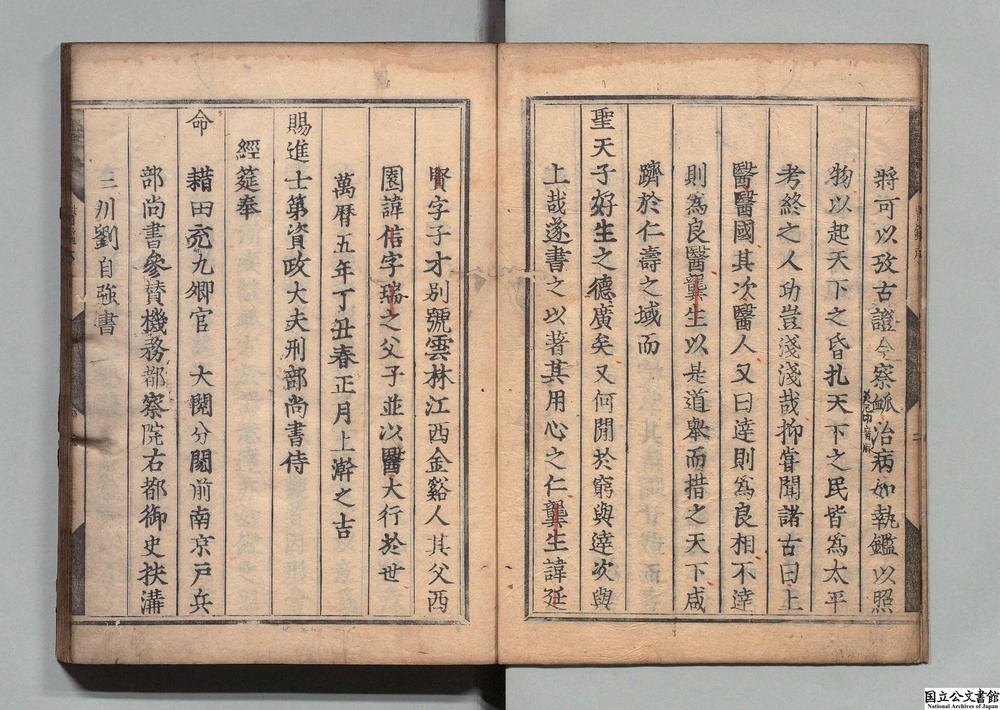 將可以攷古證今察䘑治病如執鑑以照
物以起天下之昏扎天下之民皆為太平
考終之人功豈淺淺哉抑嘗聞諸古曰上
醫醫國其次醫人又曰達則為良相不達
則為良醫龔生以是道舉而措之天下咸
躋於仁壽之域而
聖天子好生之德廣矣又何閒於窮與達次與
上哉遂書之以著其用心之仁龔生諱廷
賢字子才別號雲林江西金谿人其父西
園諱信字瑞之父子並以醫大行於世
萬曆五年丁丑春正月上澣之吉
賜進士第資政大夫刑部尚書侍
經筵奉
命
耤田充九卿官 大閱分閫前南京戶兵
部尚書參贊機務都察院右都御史扶溝
三川劉自強書
国立公文書館
National Archives of Japan